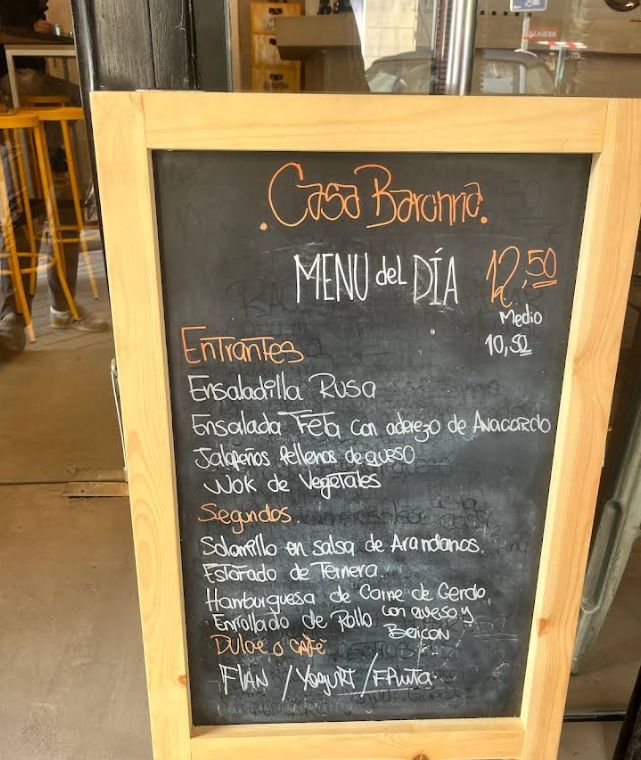 . Casa Baronna.
MENU del DÍA 12,50
Medio
10,50
Entrantes
Ensaladilla Rusa
Ensalada Feta con aderezo de Anacardo
Jalapeños Rellenos de queso
Wok de Vegetales
Segundos.
Solomillo en salsa de Arandanos.
Estofado de Ternera.
Hamburguesa de Carne de Cerdo.
Enrollado de Pollo con queso y
Beicon
Dulce o Café
Flan / Yogurt / Fruta.